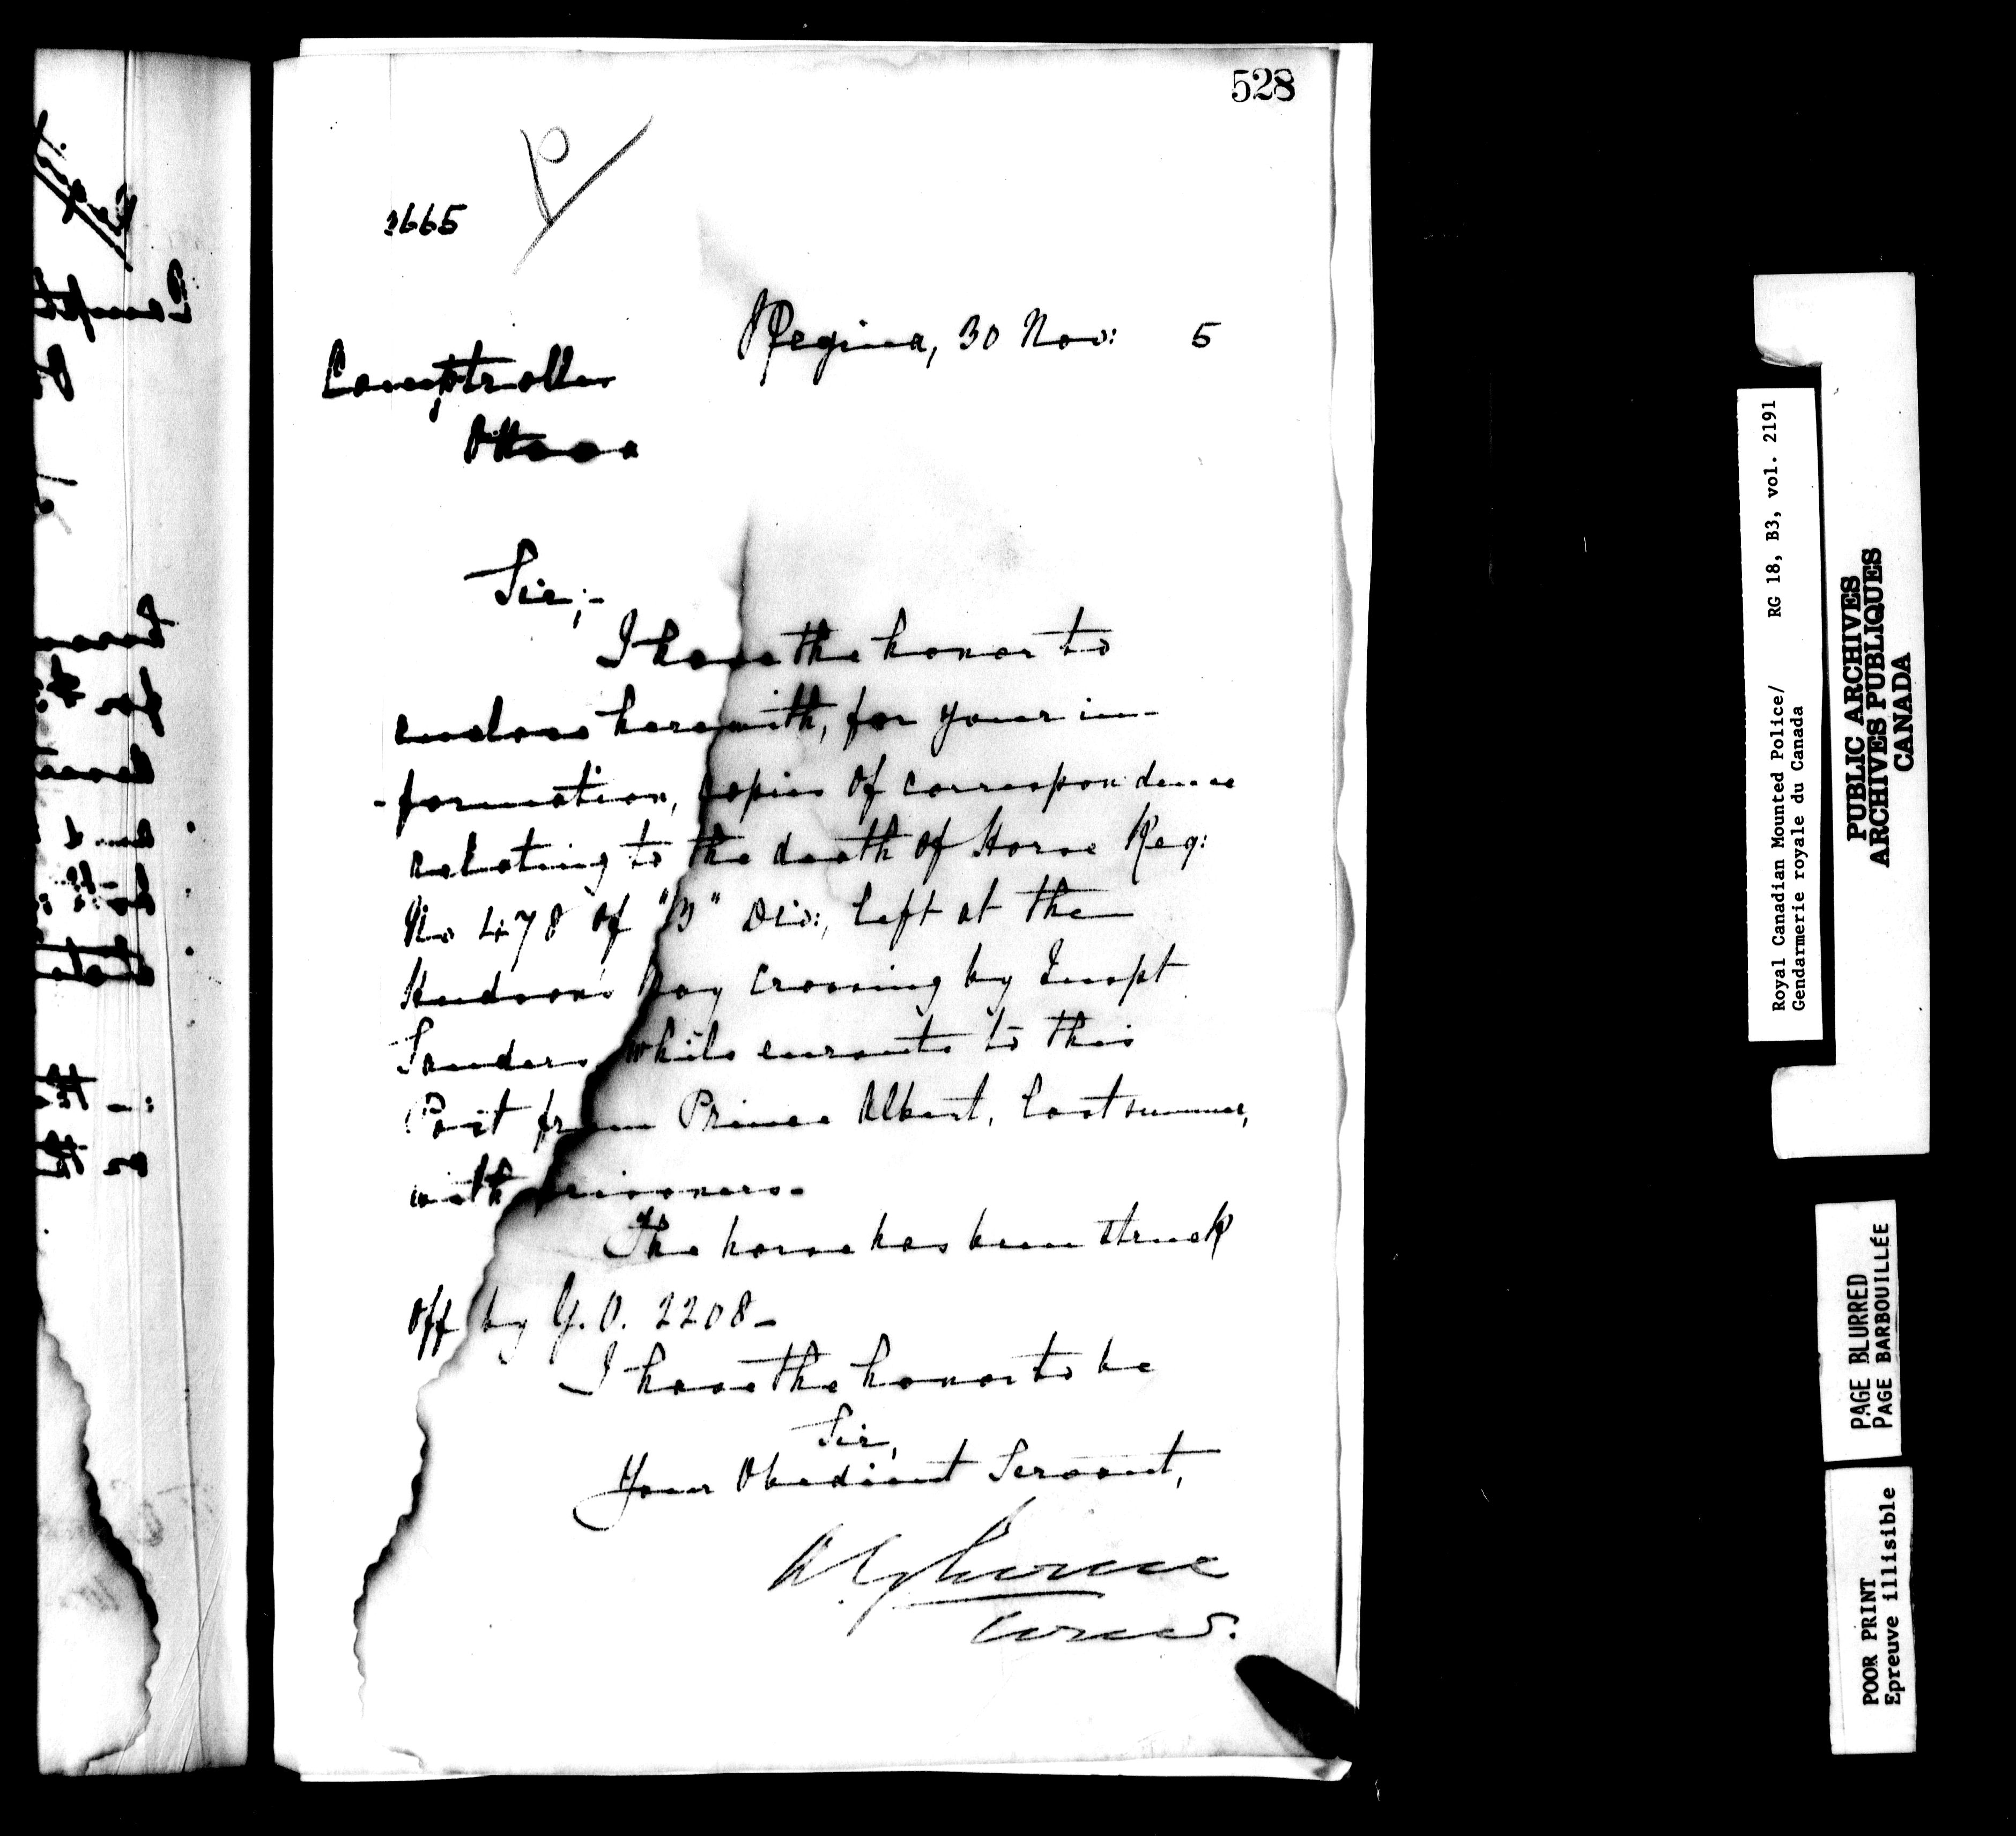 528
2665
Regina, 30 Nov: 5
Comptroller
Ottawa
Sir;-
I have the honor to
enclose herewith, for your in-
-formation, copies of correspondence
relating to the death of Horse Reg:
No 478 of "B" Div:, left at the
Hudsons Bay Crossing by Inspt
Sanders while enroute to this
Post from Prince Albert, last summer,
with prisoners-
The horse has been struck
off by G.O. 2208-
I have the honor to be
Sir,
Your Obedient Servant,
Royal Canadian Mounted Police/ RG 18, B3, vol. 2191
Gendarmerie royale du Canada
PUBLIC ARCHIVES
ARCHIVES PUBLIQUES
CANADA
PAGE BLURRED
PAGE BARBOUILLÉE
POOR PRINT
Epreuve illisible